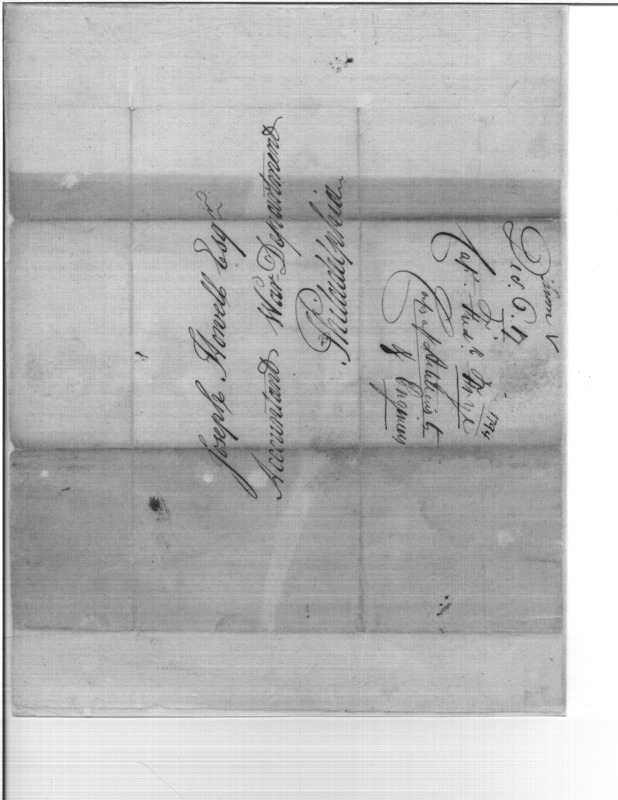 Joseph Howell Esqr
Accountant War Department
Philadelphia
1794
Capt. Fred. Frye
Corps of Artillerists
& Engineers